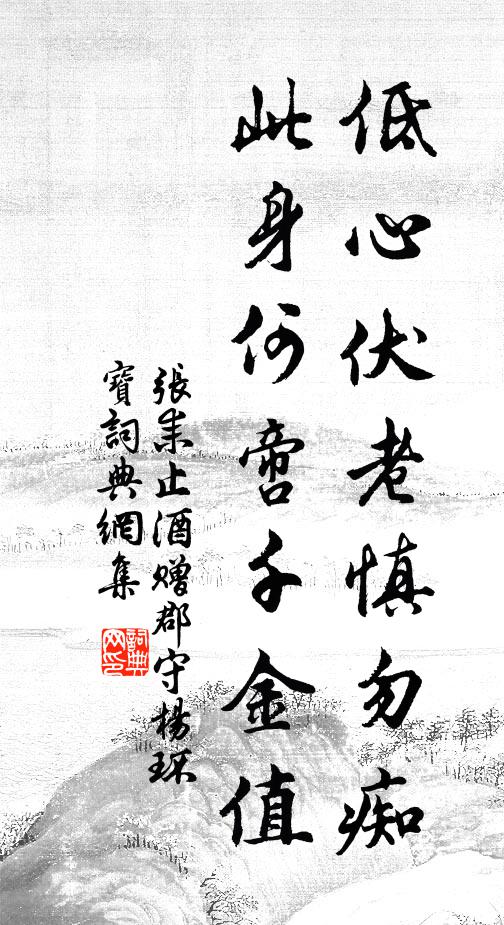 低心伏老慎勿痴
此身何啻千金值
張耒止酒贈郡守楊环
寶詞典網集
詞典网印